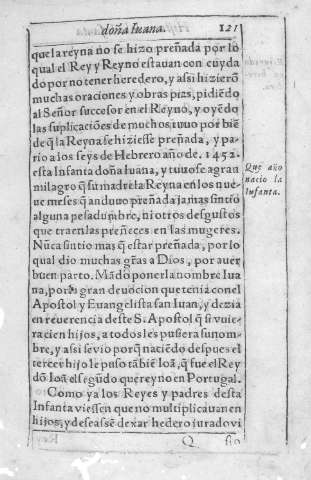 doña Iuana. 121
que la reyna no se hizo preñada por lo
qual el Rey y Reyno estauan con cuyda
do por no tener heredero, y assi hizierõ
muchas oraciones y obras pias, pidiẽdo
al Señor successor en el Reyno, y oyẽdo
las suplicaciões de muchos tuuo por biẽ
de q̃ la Reyna se hiziesse preñada, y pa-
rio a los seys de Hebrero año de. 1452.
esta Infanta doña Iuana, y tuuose a gran
milagro q̃ su madre la Reyna en los nue-
ue meses q̃ anduuo preñada jamas sintio
alguna pesadumbre, ni otros desgustos
que traen las preñeces en las mugeres.
Nũca sintio mas q̃ estar preñada, por lo
qual dio muchas gr̃as a Dios, por auer
buen parto. Mãdo ponerla nombre Iua
na, por la gran deuocion que tenia con el
Apostol y Euangelista san Iuan, y dezia
en reuerencia deste S. Apostol q̃ si vuie-
ra cien hijos, a todos les pusiera su nom-
bre, y assi se vio porq̃ naciẽdo despues el
tercer hijo le puso tãbiẽ Ioã, q̃ fue el Rey
dõ Ioã el segũdo que reyno en Portugal.
Como ya los Reyes y padres desta
Infanta viessen que no multiplicauan en
hijos, y deseassẽ dexar hedero jurado vi
Q sio
Que año
nacio la
Infanta.